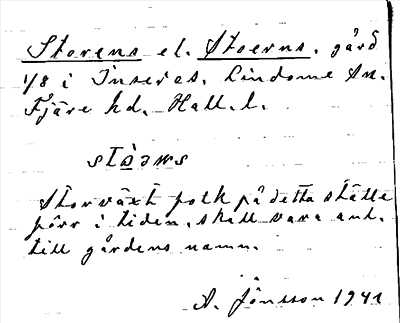 Storens el. Stoerns, gård
1/8 i Inseros. Lindome sn.
Fjäre hd. Hall. l.
Storväxt folk på detta ställe
förr i tiden, skall vara anl.
till gårdens namn.
A. Jönsson 1941